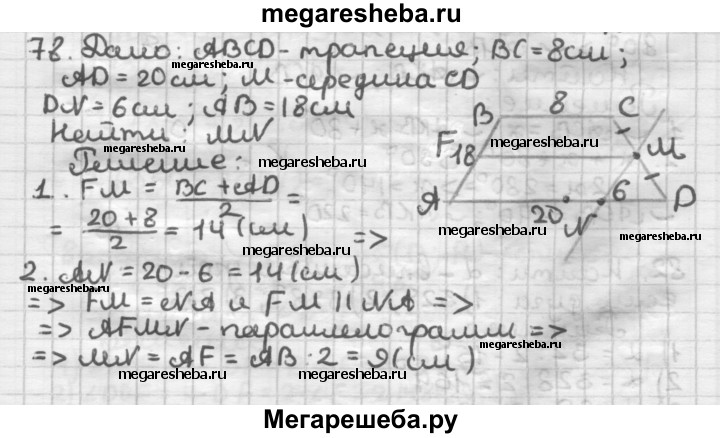 megaresheba.ru
78. Дано: ABCD - трапеция; BC = 8см;
megaresheba.ru megaresheba.ru
AD = 20см; M - середина CD
DN = 6см; AB = 18см
megaresheba.ru
Найти: MN
megaresheba.ru
Решение:
megaresheba.ru
1. FM = BC + AD / 2 =
= 20 + 8 / 2 = 14 (см) =>
megaresheba.ru
megaresheba.ru
2. AN = 20 - 6 = 14 (см)
megaresheba.ru
=> FM = NA и FM || NA =>
=> AFMN - параллелограмм =>
megaresheba.ru
=> MN = AF = AB : 2 = 9 (см)
megaresheba.ru megaresheba.ru
B 8 C
F 18 M
megaresheba.ru
A 20 N 6 D
megaresheba.ru
Мегарешеба.ру